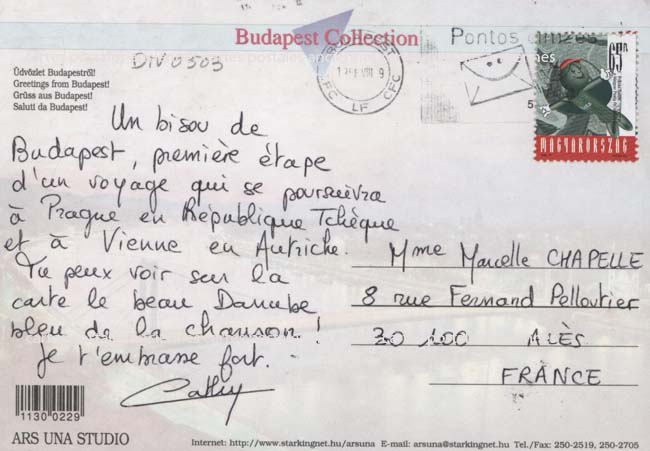 Budapest Collection
Pontos címzés
DIV 0503
BUDAPEST
LF
CFC CFC
65Ft
MAGYARORSZÁG
Üdvözlet Budapestről!
Greetings from Budapest!
Grüss aus Budapest!
Saluti da Budapest!
Un bisou de
Budapest, première étape
d'un voyage qui se poursuivra
à Prague en République Tchèque
et à Vienne en Autriche.
Tu peux voir sur la
carte le beau Danube
bleu de la chanson !
Je t'embrasse fort.
Cathy
Mme Marcelle CHAPELLE
8 rue Fernand Pelloutier
30 100 ALÈS
FRANCE
1130 0229
ARS UNA STUDIO
Internet: http://www.starkingnet.hu/arsuna E-mail: arsuna@starkingnet.hu Tel./Fax: 250-2519, 250-2705